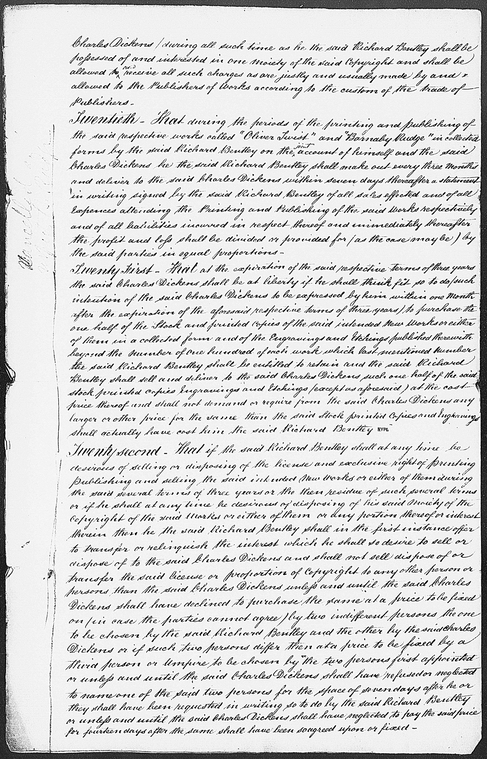 Charles Dickens (during all such time as he the said Richard Bentley shall be
possessed of and interested in one moiety of the said Copyright and shall be
allowed to receive all such charges as are justly and usually made by and
allowed to the Publishers of Works according to the custom of the trade of
Publishers.
Twentieth - That during the periods of the printing and publishing of
the said respective works called "Oliver Twist" and "Barnaby Rudge" in collected
forms by the said Richard Bentley on the account of himself and the said
Charles Dickens he the said Richard Bentley shall make out every three months
and deliver to the said Charles Dickens within seven days thereafter a statement
in writing signed by the said Richard Bentley of all sales effected and of all
Expences attending the Printing and Publishing of the said Works respectively
and of all liabilities incurred in respect thereof and immediately thereafter
the profit and loss shall be divided or provided for (as the case may be) by
the said parties in equal proportions -
Twenty First - That at the expiration of the said respective terms of three years
the said Charles Dickens shall be at liberty if he shall think fit so to do (such
intention of the said Charles Dickens to be expressed by him within one Month
after the expiration of the aforesaid respective terms of three years) to purchase the
one half of the Stock and printed copies of the said intended New Works or either
of them in a collected form and of the Engravings and Etchings published therewith
beyond the number of one hundred of each work which last mentioned number
the said Richard Bentley shall be entitled to retain and the said Richard
Bentley shall sell and deliver to the said Charles Dickens such one half of the said
stock printed copies Engravings and Etchings (except as aforesaid) at the cost
price thereof and shall not demand or require from the said Charles Dickens any
larger or other price for the same than the said Stock printed Copies and Engravings
shall actually have cost him the said Richard Bentley
Twenty second - That if the said Richard Bentley shall at any time be
desirous of selling or disposing of the license and exclusive right of printing
publishing and selling the said intended New Works or either of them during
the said several terms of three years or the then residue of such several terms
or if he shall at any time be desirous of disposing of his said moiety of the
Copyright of the said Works or either of them or any portion thereof or interest
therein then he the said Richard Bentley shall in the first instance offer
to transfer or relinquish the interest which he shall so desire to sell or
dispose of to the said Charles Dickens and shall not sell dispose of or
transfer the said license or proportion of Copyright to any other person or
persons than the said Charles Dickens unless and until the said Charles
Dickens shall have declined to purchase the same at a price to be fixed
on (in case the parties cannot agree) by two indifferent persons the one
to be chosen by the said Richard Bentley and the other by the said Charles
Dickens or if such two persons differ then at a price to be fixed by a
third person or Umpire to be chosen by the two persons first appointed
or unless and until the said Charles Dickens shall have refused or neglected
to name one of the said two persons for the space of seven days after he or
they shall have been requested in writing so to do by the said Richard Bentley
or unless and until the said Charles Dickens shall have neglected to pay the said price
for fourteen days after the same shall have been so agreed upon or fixed -